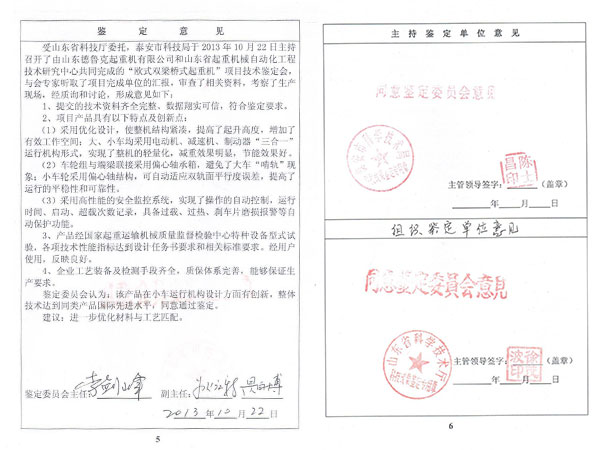 鉴定意见
受山东省科技厅委托，泰安市科技局于2013年10月22日主持
召开了由山东德鲁克起重机有限公司和山东省起重机械自动化工程
技术研究中心共同完成的“欧式双梁桥式起重机”项目技术鉴定会，
与会专家听取了项目完成单位的汇报，审查了相关资料，考察了生产
现场，经质询和讨论，形成意见如下：
1、提交的技术资料齐全完整、数据翔实可信，符合鉴定要求。
2、项目产品具有以下特点及创新点：
（1）采用优化设计，使整机结构紧凑，提高了起升高度，增加了
有效工作空间；大、小车均采用电动机、减速机、制动器“三合一”
运行机构形式，实现了整机的轻量化，减重效果明显，节能效果好。
（2）车轮组与端梁联接采用偏心轴承箱，避免了大车“啃轨”现
象；小车轮采用偏心轴结构，可自动适应双轨面平行度误差，提高了
运行的平稳性和可靠性。
（3）采用高性能的安全监控系统，实现了操作的自动控制，运行
时间、启动、超载次数记录，具备过载、过热、刹车片磨损报警等自
动保护功能。
3、产品经国家起重运输机械质量监督检验中心特种设备型式试
验，各项技术性能指标达到设计任务书要求和相关标准要求。经用户
使用，反映良好。
4、企业工艺装备及检测手段齐全，质保体系完善，能够保证生
产要求。
鉴定委员会认为：该产品在小车运行机构设计方面有创新，整体
技术达到同类产品国际先进水平，同意通过鉴定。
建议：进一步优化材料与工艺匹配。
鉴定委员会主任：
副主任：
2013年10月22日
5
主持鉴定单位意见
同意鉴定委员会意见
泰安市科学技术局
主管领导签字：（盖章）
年 月 日
组织鉴定单位意见
同意鉴定委员会意见
山东省科学技术厅
主管领导签字：（盖章）
年 月 日
6